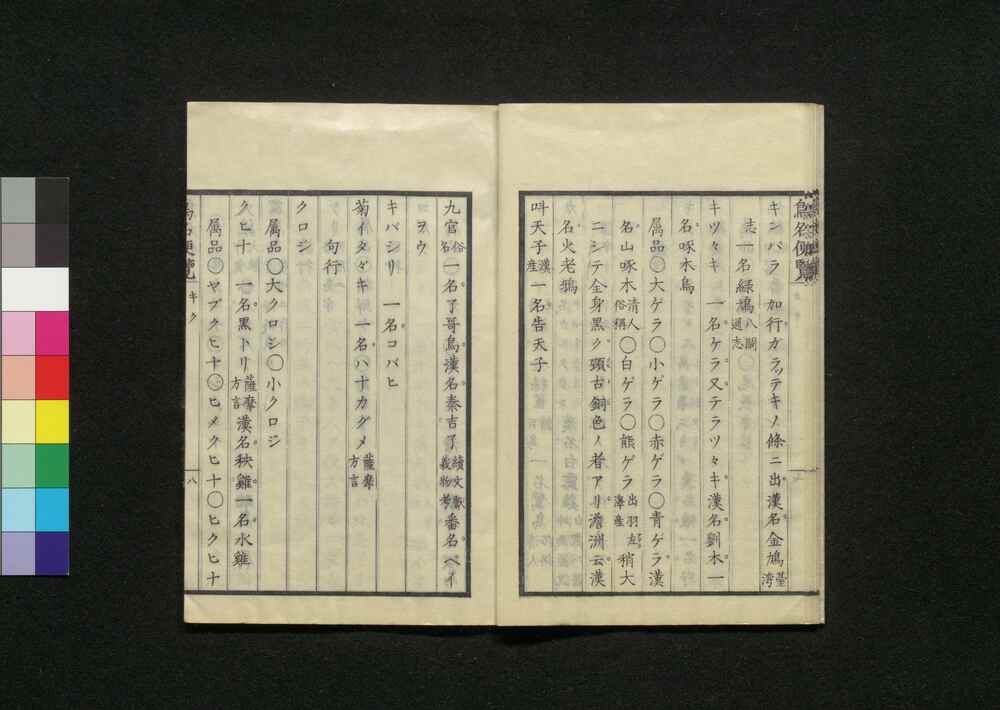 鳥名便覧
キンバラ 加行ガラッテキノ條ニ出漢名金鳩臺湾
志一名緑鳩八閩通志
キツヽキ 一名ケラ又テラツヽキ漢名斲木一
名啄木鳥
属品〇大ゲラ〇小ゲラ〇赤ゲラ〇青ゲラ漢
名山啄木清人俗稱〇白ゲラ〇熊ゲラ出羽海産稍大
ニシテ全身黒ク頭古銅色ノ者アリ澹洲云漢
名火老鴉
呌天子漢産一名告天子
九官俗名一名了哥鳥漢名秦吉了續文獻義物考番名ペイ
ヲウ
キバシリ 一名コバヒ
菊イタヾキ一名ハナカグメ薩摩方言
句行
クロジ
属品〇大クロジ〇小クロジ
クヒナ 一名黒トリ薩摩方言漢名秧雞一名水雞
属品〇ヤブクヒナ〇ヒメクヒナ〇ヒクヒナ
鳥名便覧 キク 八